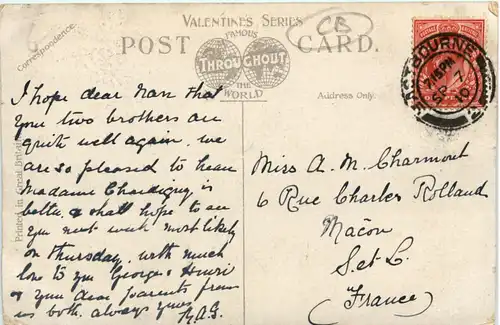 VALENTINE'S SERIES
CB
FAMOUS
POST CARD.
THROUGHOUT
THE
WORLD
Correspondence.
Address Only.
Printed in Great Britain
EASTBOURNE
SP 7
10
I hope dear Nan that
your two brothers are
quite well again, we
are so pleased to hear
Madame is
better, & shall hope to see
you next week most likely
on Thursday, with much
love to you George & Henri
& your dear parents from
us both. always yours
Miss A. M. Charmont
6 Rue Charles Rolland
Macôn
S. et L.
(France)